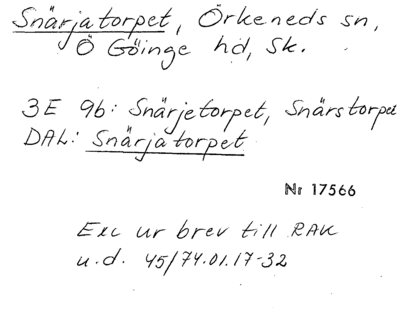 Snärjatorpet, Örkeneds sn,
Ö Göinge hd, Sk.
3E 9b: Snärjetorpet, Snärstorpet
DAL: Snärjatorpet
Nr 17566
Exc ur brev till RAK
u.d. 45/74.01.17-32